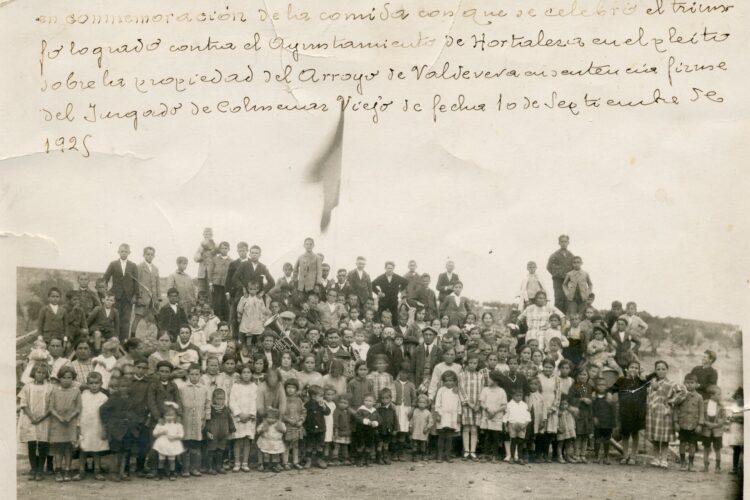 en conmemoración de la comida con que se celebró el triun
fo logrado contra el Ayuntamiento de Hortaleza en el pleito
sobre la propiedad del Arroyo de Valdevera en sentencia firme
del Juzgado de Colmenar Viejo de fecha 10 de Septiembre de
1925